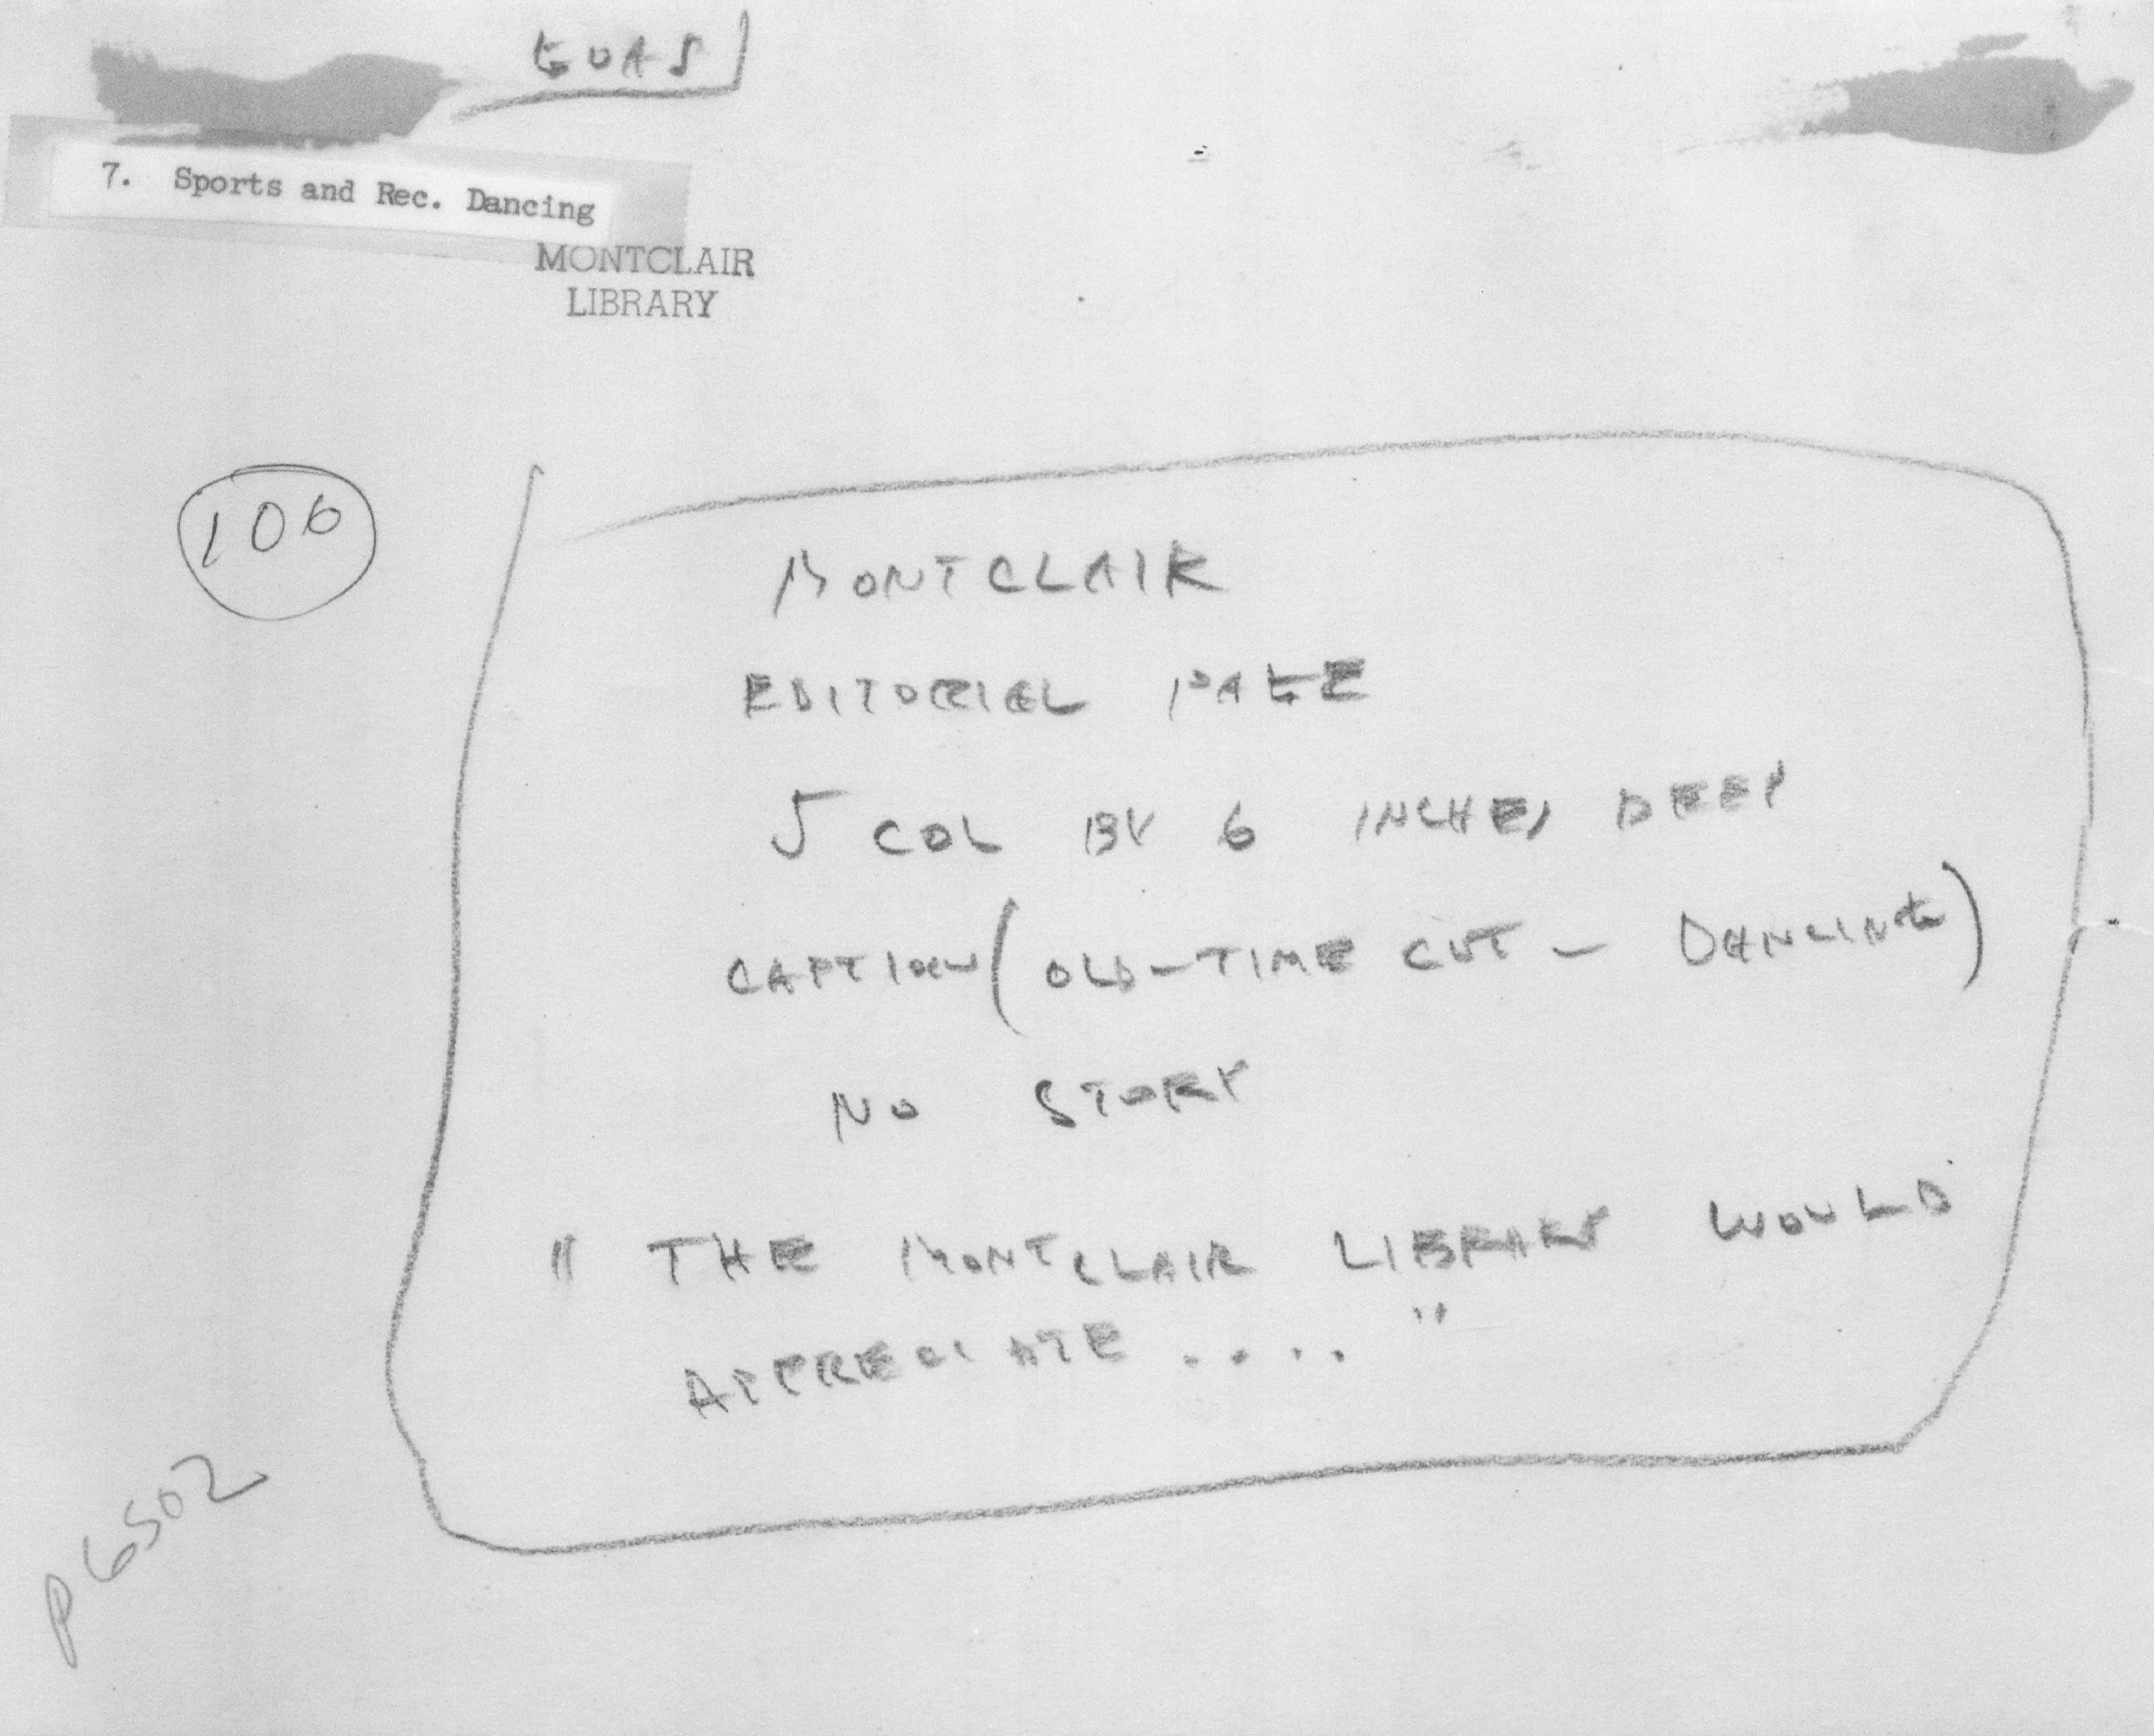 7. Sports and Rec. Dancing
MONTCLAIR
LIBRARY
106
MONTCLAIR
EDITORIAL PAGE
5 COL BY 6 INCHES DEEP
CAPTION (OLD-TIME CUT - DANCING)
NO STORY
" THE MONTCLAIR LIBRARY WOULD
APPRECIATE .... "
P6502